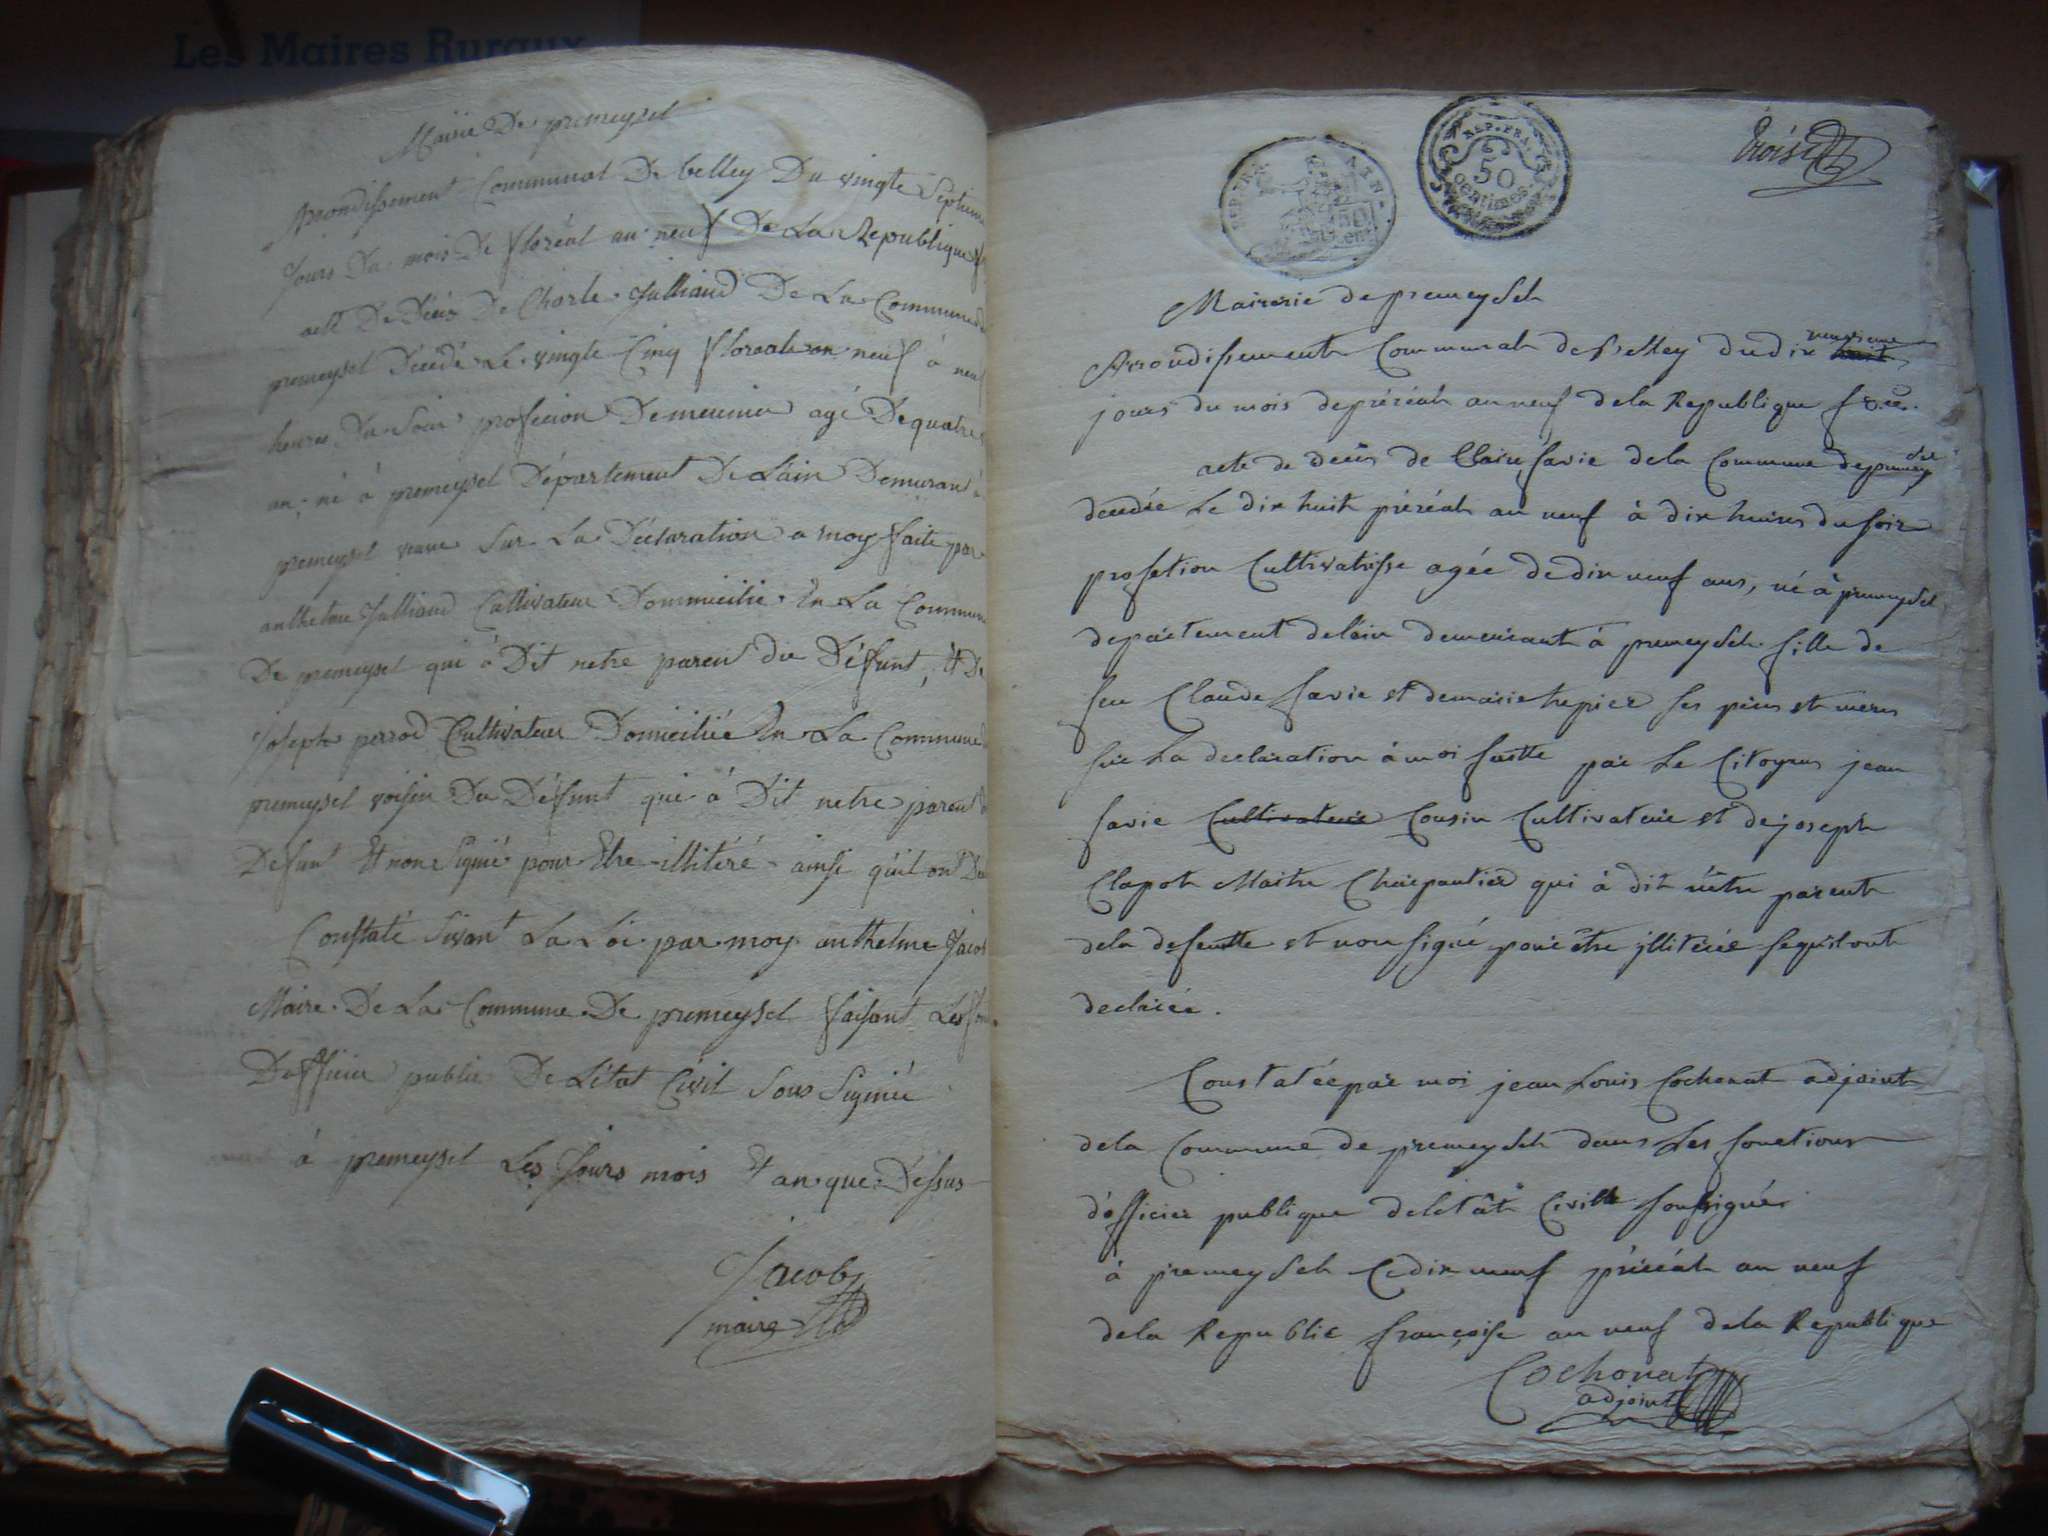 Les Maires Ruraux
Mairie De premeysel
Arrondissement Communal De belley Du vingte Septieme
Jours Du mois De floréal an neuf De La Republique
acte De Décés De Charle Julliand De La Commune de
premeysel Décédé Le vingte Cinq floreal an neuf à neuf
heures Du Soir profession De meunier agé De quatre
an, né à premeysel Département De L'ain Demurant à
premeysel Sur La Déclaration a moy faite par
anthelme Julliand Cultivateur Dommicilié En La Commune
De premeysel qui à Dit netre parent du Défunt, Et De
joseph perrod Cultivateur Domicilié En La Commune de
premeysel voisin Du Défunt qui à Dit netre parent
Defunt Et non Signié pour Etre illitéré ainsi qu'il on De
Constaté Sivant La Loi par moy anthelme Jacob
Maire De La Commune De premeysel faisant Les fon
D'officier public De L'état Civil Sous Signiée
à premeysel Les Jours mois Et an que Dessus
Jacob
maire
troise
REP. FRA.
50
centimes
Mairerie de premeysel
neuvieme
Arrondissement Communal de Belley du dix huit
jours du mois de préréal an neuf dela Republique fse
acte de decés de Claire Savie dela Commune de premeysel
decedée Le dix huit préréal an neuf à dix heures du soir
profetion Cultivatrisse agée de dix neuf ans, né à premeysel
departement delain demeurant à premeysel fille de
feu Claude Savie et de marie hepier ses péres et meres
sur La declaration à moi faitte par Le Citoyens jean
Savie Cultivateur Cousin Cultivateur et de joseph
Clapot Maitre Charpantier qui à dit nêtre parent
dela defeutte et non signé pour être jlliterée sequ'il ont
declarée.
Constatée par moi jean Louis Cochonat adjoint
dela Commune de premeysel dans Les fonctions
d'officier publique deletât Civille soussignés
à premeysel Ce dix neuf préréal an neuf
dela Republic françoise an neuf dela Republique
Cochonat
adjoint